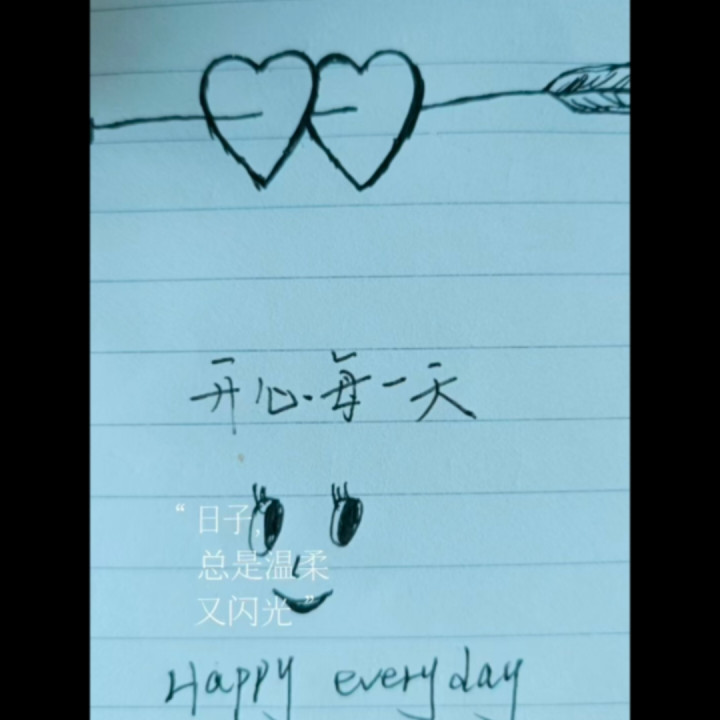 开心每一天
“日子,
总是温柔
又闪光”
Happy everyday